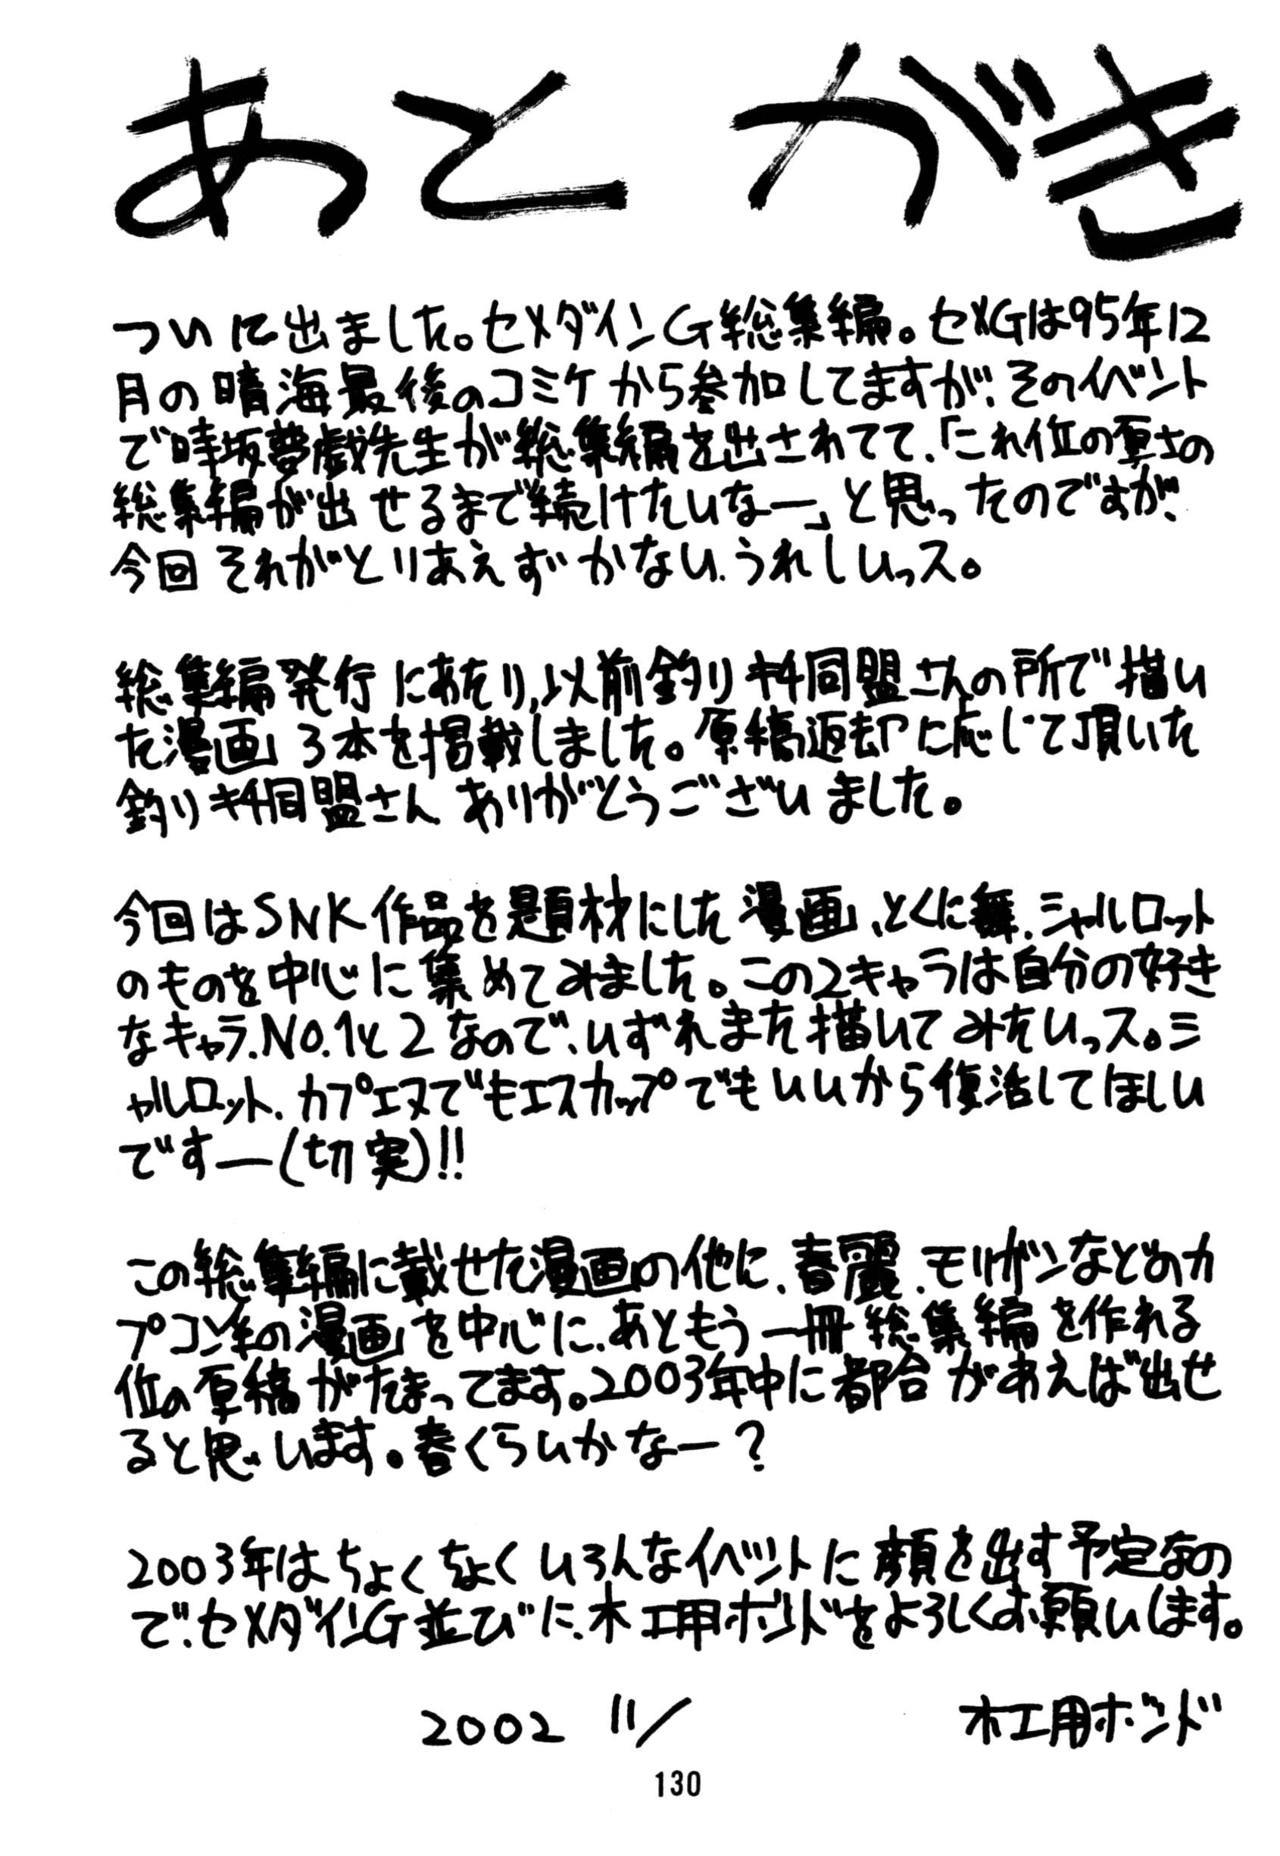 あとがき
ついに出ました。セメダインG総集編。セメGは95年12
月の晴海最後のコミケから参加してますが、そのイベント
で時坂夢戯先生が総集編を出されてて、「これ位の厚さの
総集編が出せるまで続けたいなー」と思ったのですが、
今回それがとりあえずかない、うれしいっス。
総集編発行にあたり、以前釣りキチ同盟さんの所で描い
た漫画3本を掲載しました。原稿返却に応じて頂いた
釣りキチ同盟さんありがとうございました。
今回はSNK作品を題材にした漫画、とくに舞、シャルロット
のものを中心に集めてみました。この2キャラは自分の好き
なキャラ、No.1と2なので、いずれまた描いてみたいっス。シ
ャルロット、カプエヌでもエスカップでもいいから復活してほしい
ですー(切実)!!
この総集編に載せた漫画の他に、春麗、モリガンなどのカ
プコン系の漫画を中心に、あともう一冊総集編を作れる
位の原稿がたまってます。2003年中に都合があえば出せ
ると思います。春くらいかなー?
2003年はちょくちょくいろんなイベントに顔を出す予定なの
で、セメダインG並びに、木工用ボンドをよろしくお願いします。
2002 11/ 木工用ボンド
130